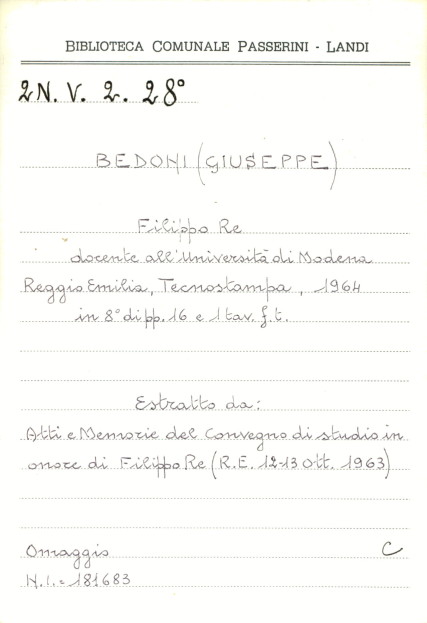 BIBLIOTECA COMUNALE PASSERINI - LANDI
2N. V. 2. 28°
BEDONI (GIUSEPPE)
Filippo Re
docente all'Università di Modena
Reggio Emilia, Tecnostampa, 1964
in 8° di pp. 16 e 1 tav. f. t.
Estratto da:
Atti e Memorie del Convegno di studio in
onore di Filippo Re (R.E. 12-13 Ott. 1963)
Omaggio C
N.I. = 181683